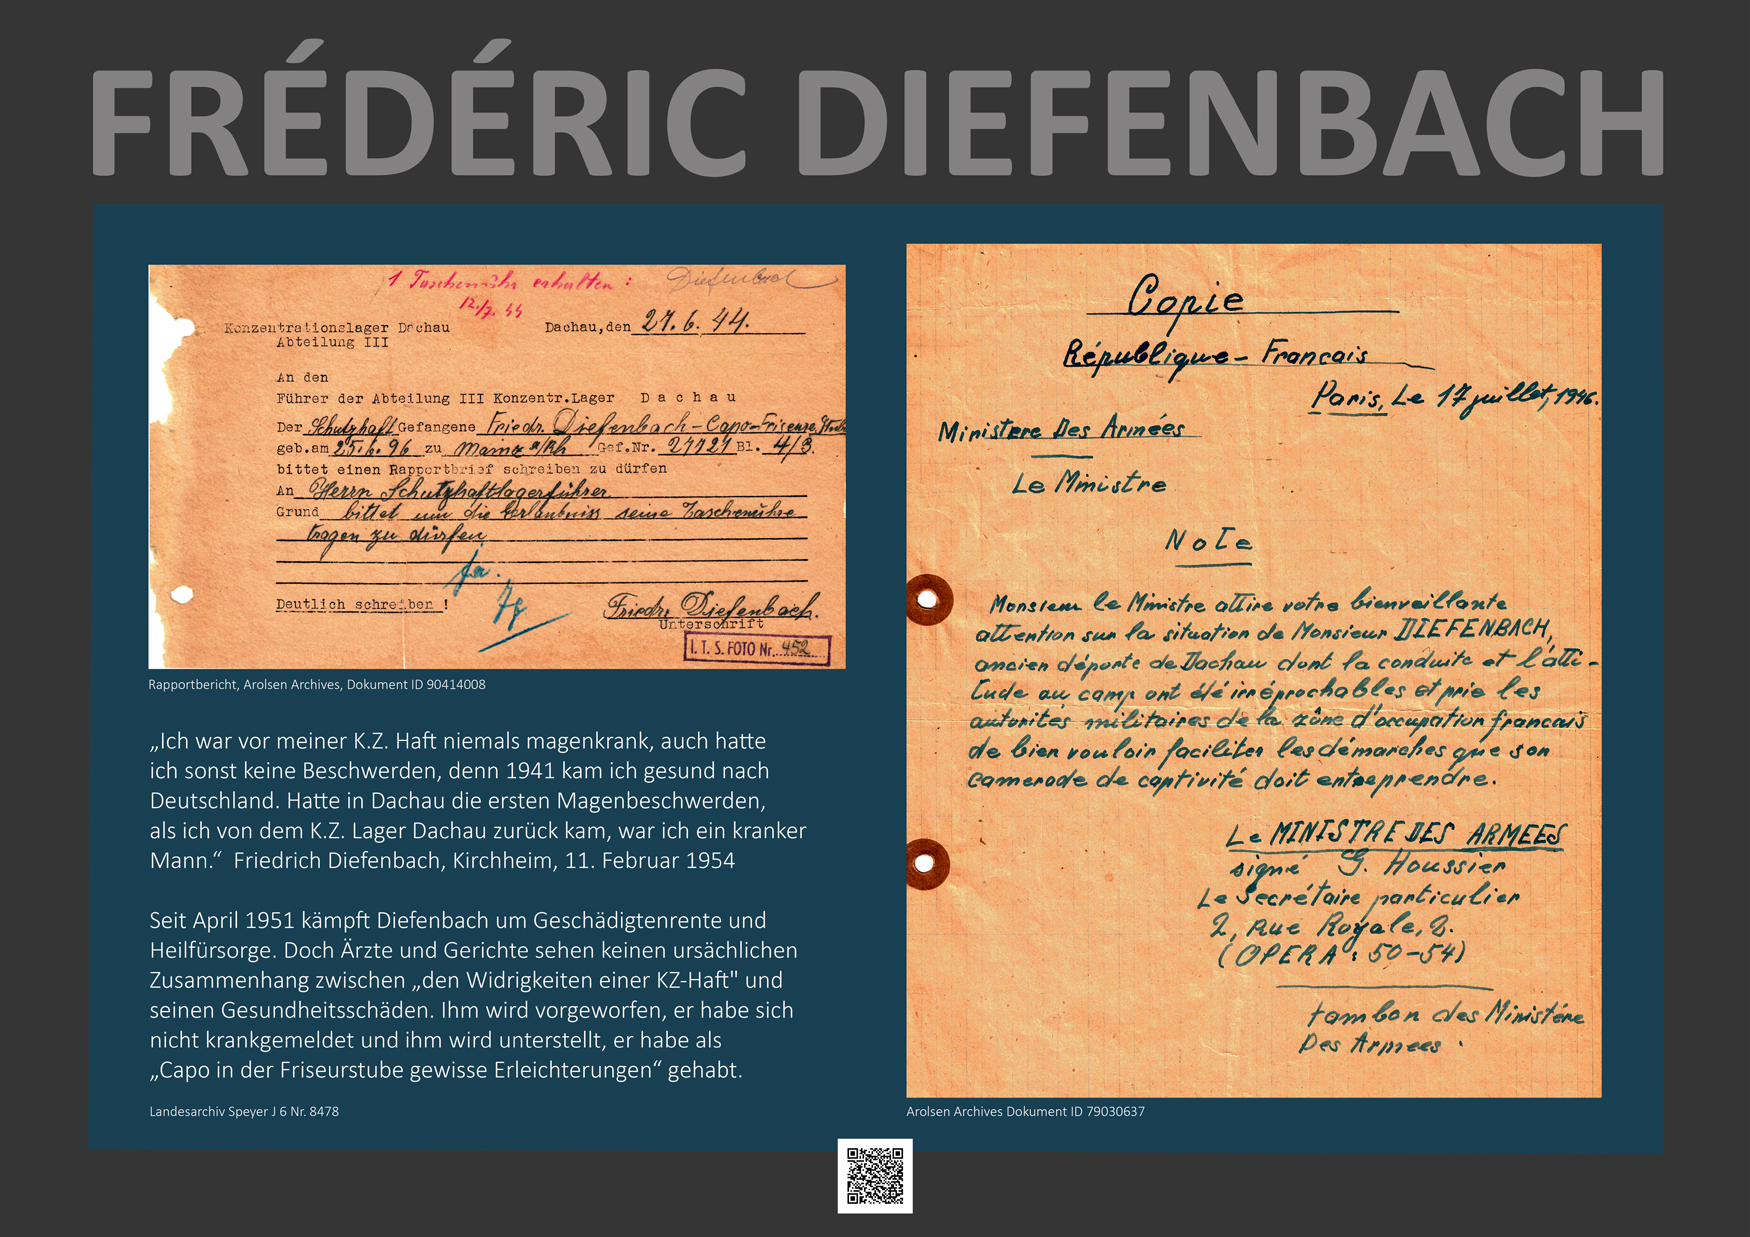 FRÉDÉRIC DIEFENBACH
1 Taschenuhr erhalten :
12./7. 44
Diefenbach
Konzentrationslager Dachau
Abteilung III
Dachau, den 27. 6. 44.
An den
Führer der Abteilung III Konzentr.Lager D a c h a u
Der Schutzhaft Gefangene Friedr. Diefenbach - Capo - Friseure
geb.am 25.6.96 zu Mainz a/Rh Gef.Nr. 27727 Bl. 4/3.
bittet einen Rapportbrief schreiben zu dürfen
An Herrn Schutzhaftlagerführer
Grund bittet um die Erlaubniss seine Taschenuhre
tragen zu dürfen
ja.
Deutlich schreiben !
Friedr. Diefenbach.
Unterschrift
I. T. S. FOTO Nr. 452
Rapportbericht, Arolsen Archives, Dokument ID 90414008
„Ich war vor meiner K.Z. Haft niemals magenkrank, auch hatte
ich sonst keine Beschwerden, denn 1941 kam ich gesund nach
Deutschland. Hatte in Dachau die ersten Magenbeschwerden,
als ich von dem K.Z. Lager Dachau zurück kam, war ich ein kranker
Mann.“ Friedrich Diefenbach, Kirchheim, 11. Februar 1954
Seit April 1951 kämpft Diefenbach um Geschädigtenrente und
Heilfürsorge. Doch Ärzte und Gerichte sehen keinen ursächlichen
Zusammenhang zwischen „den Widrigkeiten einer KZ-Haft" und
seinen Gesundheitsschäden. Ihm wird vorgeworfen, er habe sich
nicht krankgemeldet und ihm wird unterstellt, er habe als
„Capo in der Friseurstube gewisse Erleichterungen“ gehabt.
Landesarchiv Speyer J 6 Nr. 8478
Copie
République - Francais
Paris, Le 17 juillet, 1946.
Ministere Des Armées
Le Ministre
Note
Monsieur le Ministre attire votre bienveillante
attention sur la situation de Monsieur DIEFENBACH,
ancien déporte de Dachau dont la conduite et l'atti-
tude au camp ont été irréprochables et prie les
autorités militaires de la zône d'occupation francais
de bien vouloir faciliter les démarches que son
camerade de captivité doit entreprendre.
Le MINISTRE DES ARMEES
signé G. Houssier
Le Secrétaire particulier
2, Rue Royale, 2.
(OPERA : 50-54)
tambon des Ministére
Des Armees .
Arolsen Archives Dokument ID 79030637